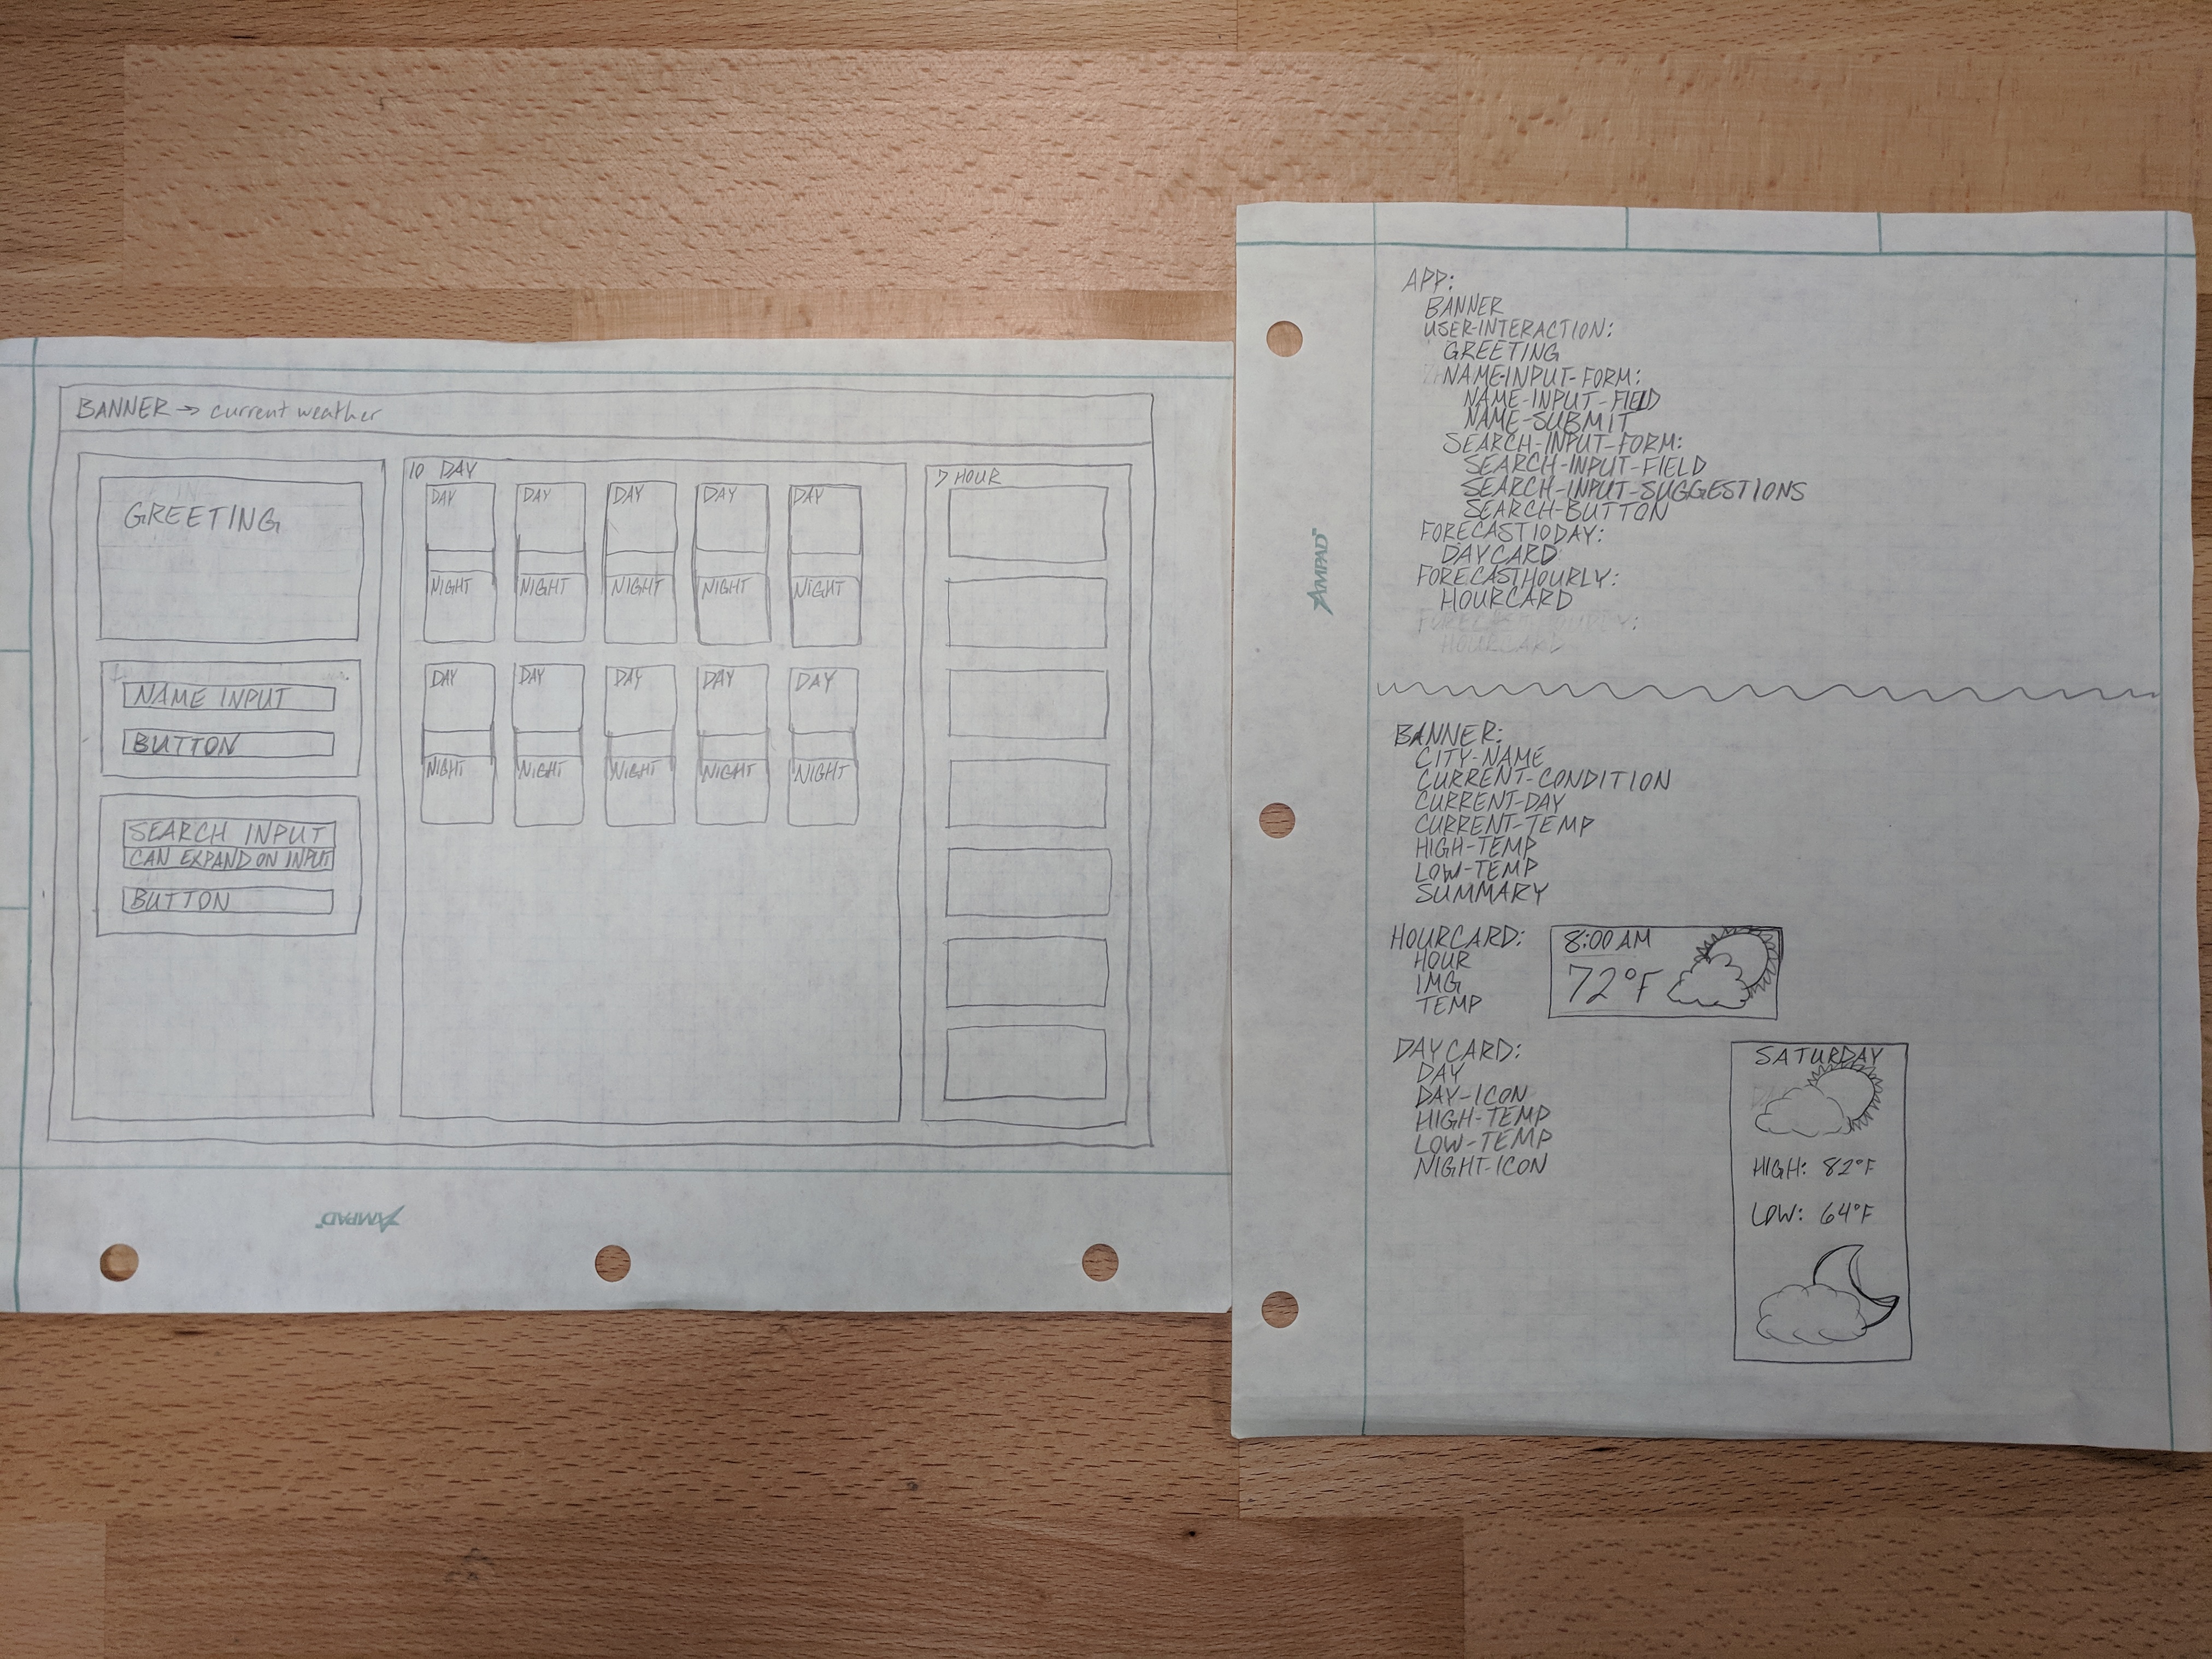 BANNER → current weather
GREETING
NAME INPUT
BUTTON
SEARCH INPUT
CAN EXPAND ON INPUT
BUTTON
10 DAY
DAY DAY DAY DAY DAY
NIGHT NIGHT NIGHT NIGHT NIGHT
DAY DAY DAY DAY DAY
NIGHT NIGHT NIGHT NIGHT NIGHT
7 HOUR
AMPAD
APP:
BANNER
USER-INTERACTION:
GREETING
NAME-INPUT-FORM:
NAME-INPUT-FIELD
NAME-SUBMIT
SEARCH-INPUT-FORM:
SEARCH-INPUT-FIELD
SEARCH-INPUT-SUGGESTIONS
SEARCH-BUTTON
FORECAST10DAY:
DAYCARD
FORECASTHOURLY:
HOURCARD
FORECASTHOURLY:
HOURCARD
AMPAD
BANNER:
CITY-NAME
CURRENT-CONDITION
CURRENT-DAY
CURRENT-TEMP
HIGH-TEMP
LOW-TEMP
SUMMARY
HOURCARD:
HOUR
IMG
TEMP
8:00 AM
72°F
DAYCARD:
DAY
DAY-ICON
HIGH-TEMP
LOW-TEMP
NIGHT-ICON
SATURDAY
HIGH: 82°F
LOW: 64°F